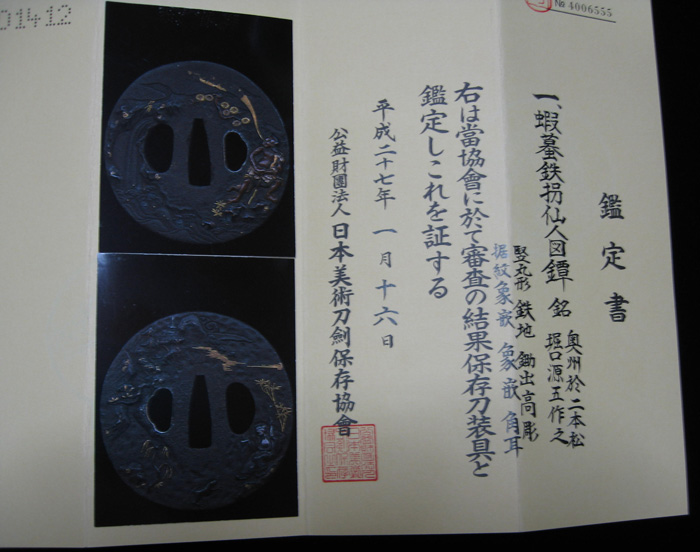 鑑定書
№ 4006555
一、蝦蟇鉄拐仙人図鐔 銘 奥州於二本松
堀口源五作之
竪丸形 鉄地 鋤出高彫
据紋象嵌 象嵌 角耳
右は當協會に於て審査の結果保存刀装具と
鑑定しこれを証する
平成二十七年 一月 十六日
公益財團法人 日本美術刀劍保存協會
01412